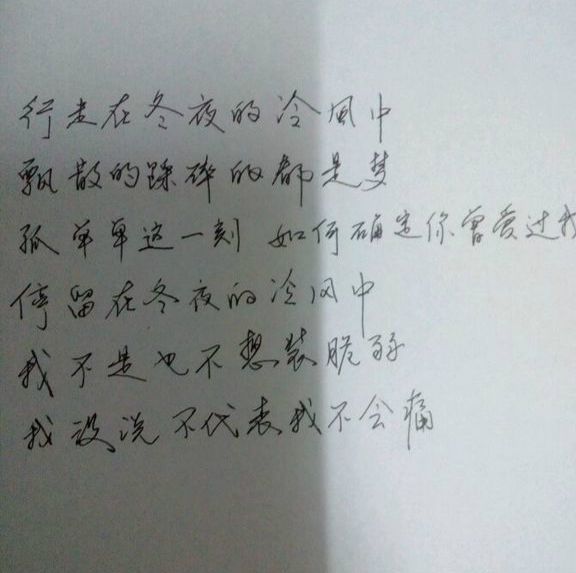 行走在冬夜的冷風中
飘散的踩碎的都是梦
孤单单这一刻 如何确定你曾爱过我
停留在冬夜的冷风中
我不是也不想装脆弱
我没说不代表我不会痛